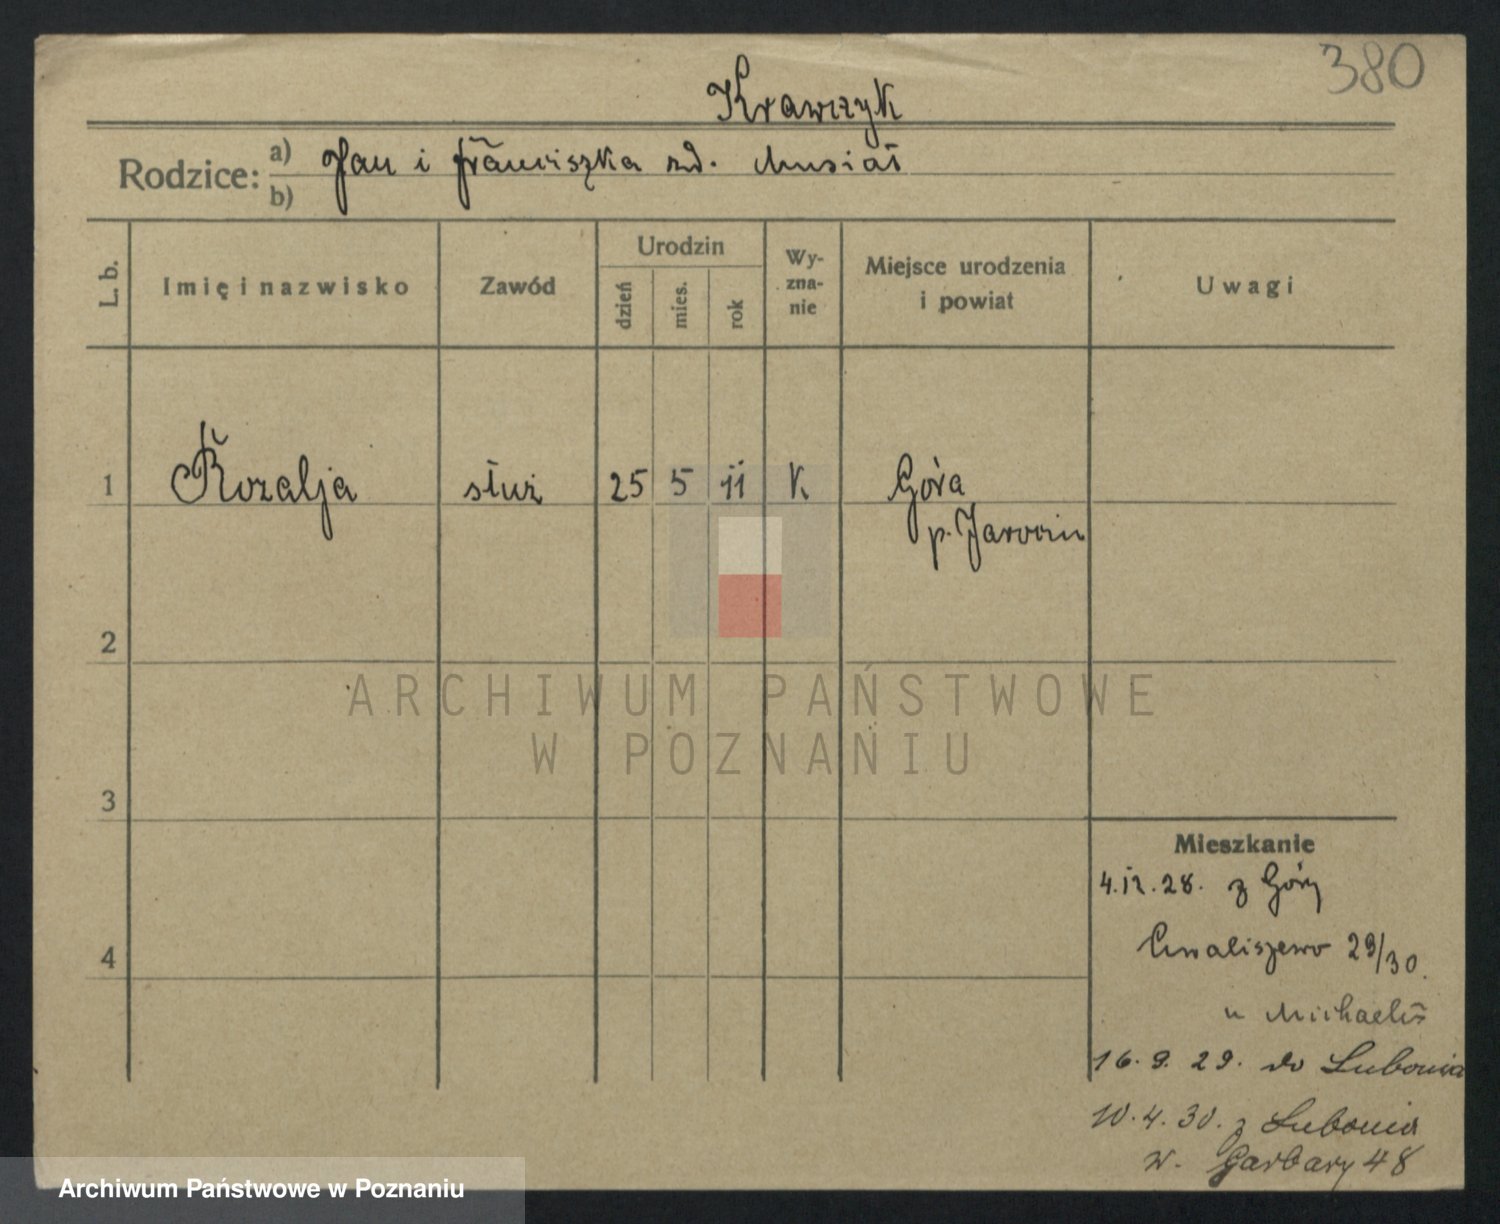 380
Krawczyk
Rodzice: a) Jan i Franciszka zd. Musiał
b)
L. b. Imię i nazwisko Zawód Urodzin dzień mies. rok Wyznanie Miejsce urodzenia i powiat Uwagi
1 Rozalja służ 25 5 11 k. Góra
p. Jarocin
2
ARCHIWUM PAŃSTWOWE
W POZNANIU
3
Mieszkanie
4.12.28. z Góry
4
Chwaliszewo 29/30.
u Michaelis
16.9.29. do Lubonia
10.4.30. z Lubonia
w. Garbary 48
Archiwum Państwowe w Poznaniu